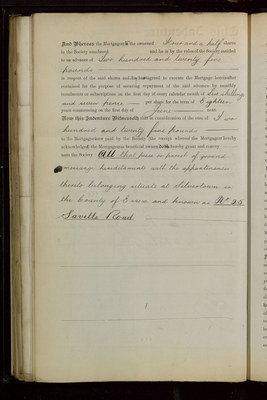 And Whereas the Mortgagor has executed Four and a half deeds
in the Society numbered and he is by the rules of the Society entitled
to an advance of Two hundred and twenty five
pounds
in respect of the said shares and has agreed to execute the Mortgage hereinafter
contained for the purpose of securing repayment of the said advance by monthly
instalments or subscriptions on the first day of every calendar month of one shilling
and seven pence per share for the term of Eighteen
years commencing on the first day of June
Now this Indenture Witnesseth that in consideration of the sum of Two
hundred and twenty five pounds
to the Mortgagor now paid by the Society (the receipt whereof the Mortgagor hereby
acknowledges) the Mortgagor as beneficial owner doth hereby grant and convey
unto the Society All that piece or parcel of ground
messuage hereditaments with the appurtenances
thereto belonging situate at Silvertown in
the County of Essex and known as No
Saville Road